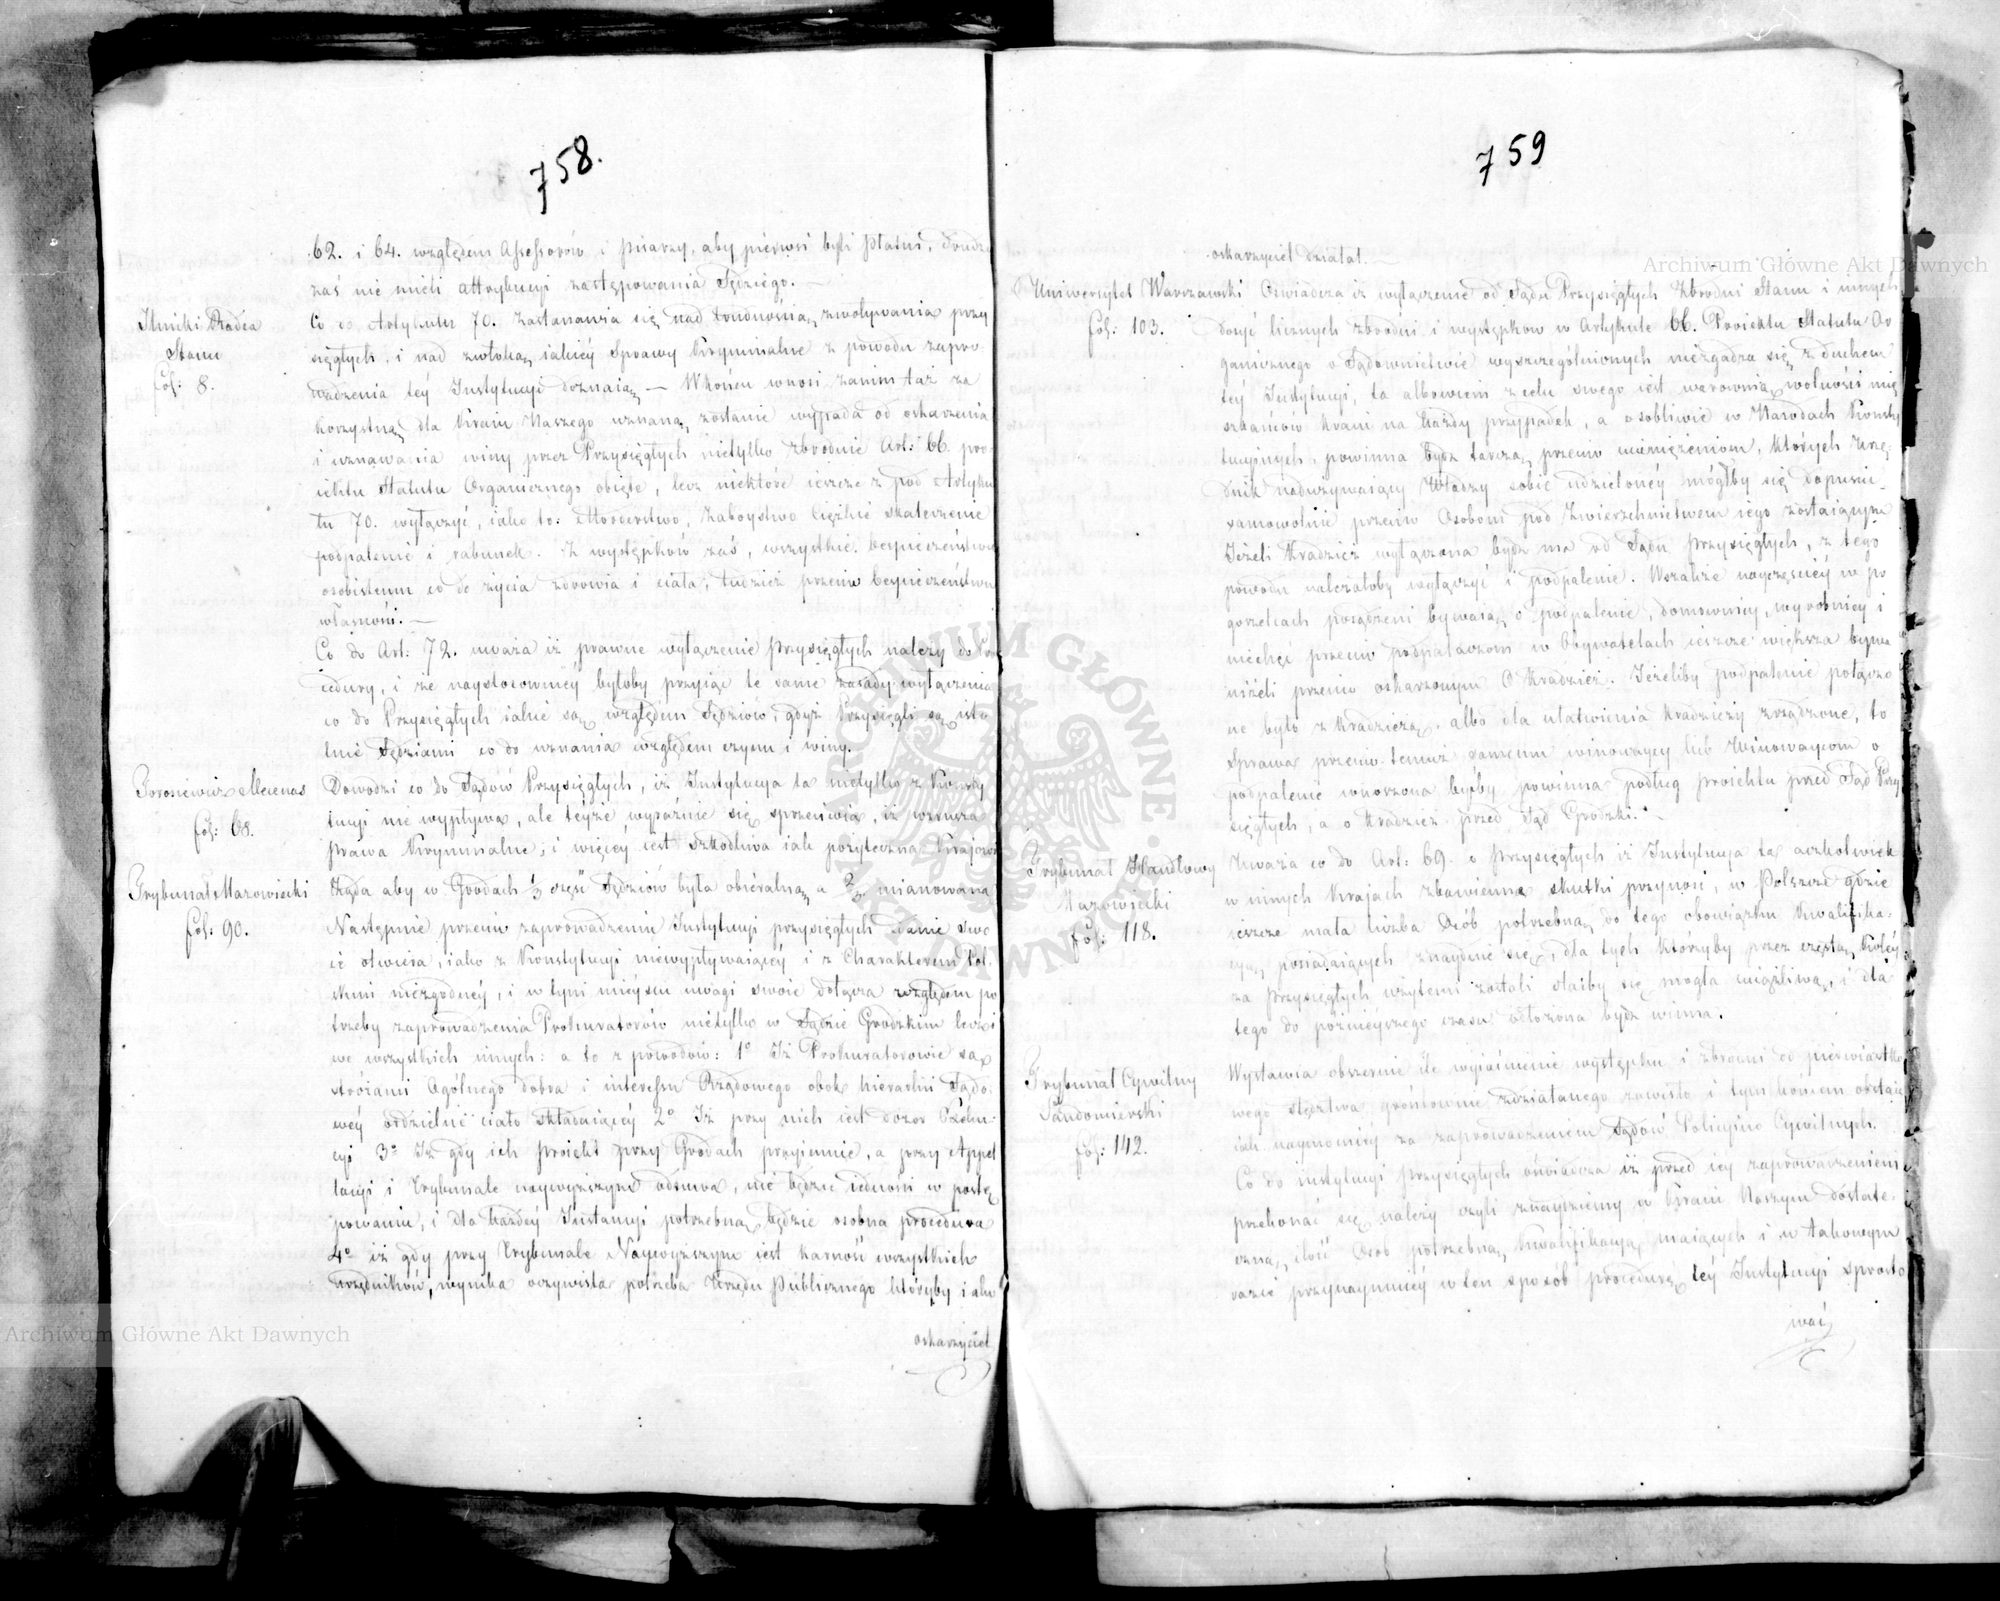 758.
62. i 64. względem Assessorów i Pisarzy, aby pierwsi byli płatni, drudzy
zaś nie mieli attrybucyi zastępowania Sędziego. —
Ilnicki Radca
Stanu
fol: 8.
Co do Artykułu 70. zastanawia się nad trudnością zwoływania przy
sięgłych, i nad zwłoką iakiéy Sprawy Kryminalne z powodu zapro-
wadzenia téy Instytucyi doznaią — Wkońcu wnosi zanim taż za
korzystną dla Kraiu Naszego uznaną zostanie wypada od oskarżenia
i uznawania winy przez Przysięgłych nietylko zbrodnie Art: 66. pro-
iektu Statutu Organicznego obięte, lecz niektóre ieszcze z pod Artyku
łu 70. wyłączyć, iako to: Morderstwo, Zaboystwo Ciężkie skaleczenie
podpalenie i rabunek. Z występków zaś, wszystkie bespieczeństwu
osobistemu co do życia zdrowia i ciała, tudzież przeciw bezpieczeństwu
własności. —
Co do Art: 72. uważa iż prawne wyłączenie Przysięgłych należy do Pro
cedury, i że naystosowniéy byłoby przyiąć te same zasady wyłączenia
co do Przysięgłych iakie są względem Sędziów, gdyż Przysięgli są isto
tnie Sędziami co do uznania względem czynu i winy.
Torosiewicz Mecenas
fol: 68.
Dowodzi co do Sądów Przysięgłych, iż Instytucya ta nietylko z Konsty
tucyi nie wypływa, ale téyże wyraźnie się sprzeciwia, iż wzrusza
prawa Kryminalne, i więcéy iest szkodliwa iak pożyteczna Kraiowi
Trybunał Mazowiecki
fol: 90.
Żąda aby w Grodach 1/3 część Sędziów była obieralną a 2/3 mianowaną
Następnie przeciw zaprowadzeniu Instytucyi przysięgłych zdanie swo
ie otwiera, iako z Konstytucyi niewypływaiącéy i z Charakterem Pol
skim niezgodnéy, i w tym mieyscu uwagi swoie dołącza względem po
trzeby zaprowadzenia Prokuratorów nietylko w Sądzie Grodzkim lecz i
we wszystkich innych: a to z powodów: 1o Iż Prokuratorowie są
stróżami Ogólnego dobra i interessu Rządowego obok hierarchii Sądo-
wéy oddzielnie ciało składaiącéy 2o Iż przy nich iest dozór Exeku-
cyi 3o Iż gdy ich proiekt przy Grodach przyimuie, a przy Appel
lacyi i Trybunale naywyższym odsuwa, nie będzie iedności w postę
powaniu, i dla każdéy Instancyi potrzebną będzie osobna procedura
4o iż gdy przy Trybunale Naywyższym iest karność wszystkich
urzędników, wynika oczywista potrzeba Urzędu Publicznego któryby iako
oskarżyciel
759
oskarżyciel działał. —
Uniwersytet Warszawski
fol: 103.
Oświadcza iż wyłączenie od Sądu Przysięgłych Zbrodni Stanu i innych
dosyć licznych zbrodni i występków w Artykule 66. Proiektu Statutu Or
ganicznego o Sądownictwie wyszczególnionych niezgadza się z duchem
téy Instytucyi, ta albowiem z celu swego iest warownią wolności mie
szkańców kraiu na każdy przypadek, a osobliwie w Narodach Konsty
tucyinych, powinna bydź tarczą przeciw uciemiężeniom, których Urzę-
dnik nadużywaiący Władzy sobie udzielonéy mógłby się dopuści
samowolnie przeciw Osobom pod zwierzchnictwem iego zostaiącym
Ieżeli kradzież wyłączona bydź ma od Sądu przysięgłych, z tego
powodu należałoby wyłączyć i podpalenie. Wszakże nayczęściéy w po
gorzelach posądzeni bywaią o podpalenie, domownicy, wyrobnicy i
niechęć przeciw podpalaczom w Obywatelach ieszcze większa bywa
niżeli przeciw oskarżonym o kradzież. Ieżeliby podpalenie połączo
ne było z kradzieżą, albo dla ułatwienia kradzieży zrządzone, to
Sprawa przeciw temuż samemu winowaycy lub Winowaycom o
podpalenie wnoszona byćby powinna podług proiektu przed Sąd Przy
sięgłych, a o kradzież przed Sąd Grodzki. —
Trybunał Handlowy
Mazowiecki
fol: 118.
Uważa co do Art: 69. o przysięgłych iż Instytucya ta aczkolwiek
w innych Kraiach zbawienne skutki przynosi, w Polszcze gdzie
ieszcze mała liczba Osób potrzebną do tego obowiązku kwalifika-
cyą posiadaiących znaydzie się, dla tych którzyby przez częstą Koléy
za przysięgłych użytemi zostali staćby się mogła uciążliwą, i dla
tego do poźnieyszego czasu odłożona bydź winna.
Trybunał Cywilny
Sandomierski
fol: 142.
Wystawia obszernie ile wyiaśnienie występku i zbrodni od pierwiastko
wego śledztwa gróntownie zdziałanego zawisło i tym końcem obstaie
iak naymocniéy za zaprowadzeniem Sądów Policyino Cywilnych.
Co do instytucyi Przysięgłych oświadcza iż przed iéy zaprowadzeniem
przekonać się należy czyli znaydziemy w Kraiu Naszym dostate-
czną ilość Osób potrzebną kwalifikacyą maiących i w takowym
razie przynaymniéy w ten sposób procedurę téy Instytucyi sprosto
wać
Archiwum Główne Akt Dawnych
Archiwum Główne Akt Dawnych
ARCHIWUM GŁÓWNE AKT DAWNYCH